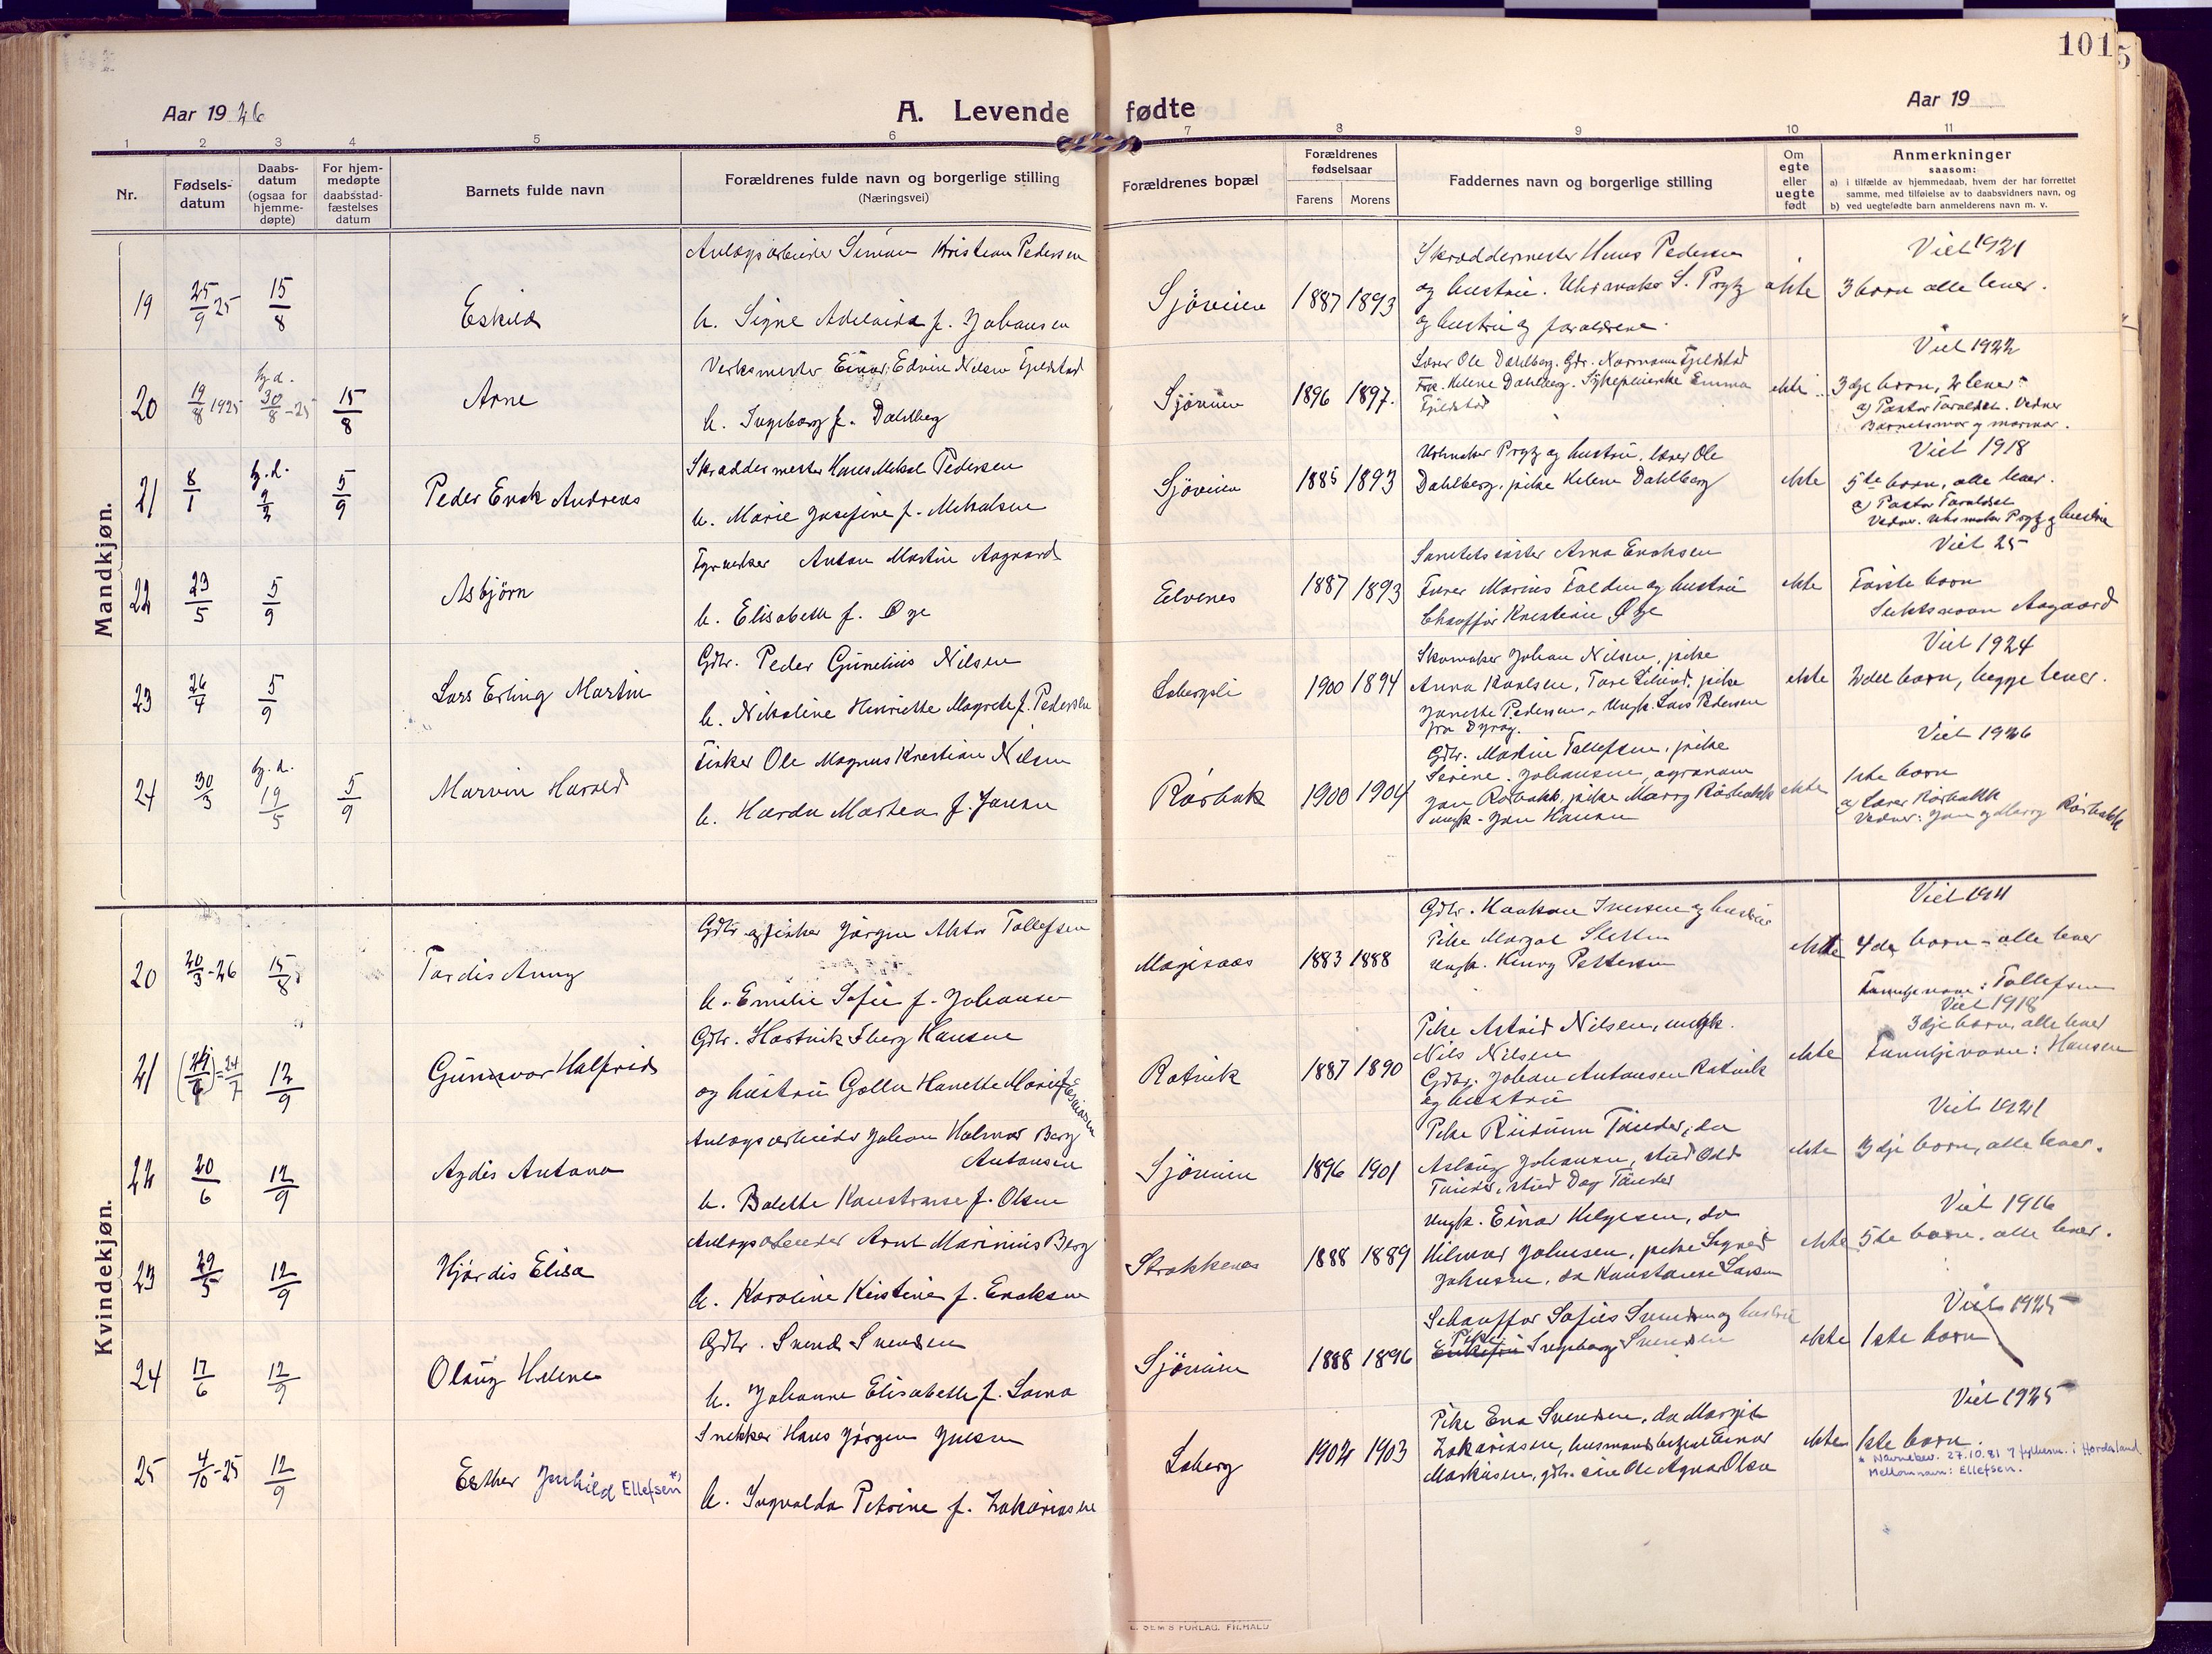 101
5
Aar 1926
A. Levende fødte
Aar 19
1 2 3 4 5 6 7 8 9 10 11
Nr.
Fødsels-
datum
Daabs-
datum
(ogsaa for
hjemme-
døpte)
For hjem-
medøpte
daabsstad-
fæstelses
datum
Barnets fulde navn
Forældrenes fulde navn og borgerlige stilling
(Næringsvei)
Forældrenes bopæl
Forældrenes
fødselsaar
Farens Morens
Faddernes navn og borgerlige stilling
Om
egte
eller
uegte
født
Anmerkninger
saasom:
a) i tilfælde av hjemmedaab, hvem der har forrettet
samme, med tilføielse av to daabsvidners navn, og
b) ved uegtefødte barn anmelderens navn m. v.
Mandkjøn.
Anlægsarbeider Simon Kristian Pedersen
Skræddermester Hans Pedersen
Viet 1921
19 25/9 25 15/8 Eskild
h. Signe Adelaida f. Johansen
Sjøveien 1887 1893
og hustru. Uhrmaker S. Prytz
ekte 3 barn alle lever.
og hustru og forældrene.
Verksmester Einar Edvin Nilsen Fjeldstad
Lærer Ole Dahlberg. Gdr. Normann Fjeldstad
Viet 1922
20 19/8 1925 hj.d. 30/8-25 15/8 Arne
h. Ingeborg f. Dahlberg
Sjøveien 1896 1897.
Frk. Helene Dahlberg. Sykepleierske Emma
Fjeldstad
ekte 3dje barn, 2 lever.
a) Pastor Taraldset. Vidner
Barnets mor og mormor.
Skræddermester Hans Mikal Pedersen
Uhrmaker Prytz og hustru, lærer Ole
Viet 1918
21 8/1 hj.d. 9/3 5/9 Peder Enok Andreas
h. Marie Josefine f. Mikalsen
Sjøveien 1885 1893
Dahlberg, pike Helene Dahlberg
ekte 5te barn, alle lever.
a) Pastor Taraldset
Vidner. Uhrmaker Prytz og hustru
Anton Martin Aagaard
Arna Enoksen
Viet 25
22 23/5 5/9 Asbjørn
h. Elisabeth f. Øye
Elvenes 1887 1893
Marius Folden og hustru
Chauffør Kristian Øye
ekte Første barn
Slektsnavn Aagaard
Gdbr. Peder Gunelius Nilsen
Skomaker Johan Nilsen, pike
Viet 1924
23 26/4 5/9 Lars Erling Martin
h. Nikoline Henriette Magrete f. Pedersen
Løbergsli 1900 1894
Anna Karlsen, pike
Janette Pedersen, Ungk. Lars Pedersen
fra Dyrøy.
ekte 2det barn, begge lever.
Fisker Ole Magnus Kristian Nilsen
Gdbr. Martin Tollefsen, pike
Viet 1926
24 30/3 hj.d. 19/5 5/9 Marvin Harald
h. Harda Marthea f. Jensen
Rørbak 1900 1904
Serine Johansen, agronom
Jon Rørbakk, pike Marry Rørbakk
ungk. Jon Hansen
ekte 1ste barn
a) Lærer Rørbakk
Vidner: Jon og Marry Rørbakk
Kvindekjøn.
Gdbr og fisker Jørgen Aktor Tollefsen
Gdbr. Haakon Iversen og hustru
Viet 1911
20 20/3-26 15/8 Tordis Anny
h. Emilie Sofie f. Johansen
Mogenaas 1883 1888
Pike Margot Sletten
Ungk. Henry Pettersen
ekte 4de barn - alle lever
Familjenavn: Tollefsen
Gdbr. Hartvik Iberg Hansen
Pike Astrid Nilsen, ungk.
Viet 1918
3dje barn, alle lever
21 24/7 12/9 Gunvor Halfrid
og hustru Golla Hanette Marie f. Esaiassen
Rotvik 1887 1890
Nils Nilsen
Gdbr. Johan Antonsen Rotvik
og hustru
ekte Familjenavn: Hansen
Anlægsarbeider Johan Halmar Berg
Antonsen
Pike Ridunn Tønder, do
Viet 1921
22 20/6 12/9 Agdis Antona
h. Bolette Konstanse f. Olsen
Sjøveien 1896 1901
Aslaug Johansen, stud Odd
Tønder, stud Dag Tønder
ekte 3dje barn, alle lever.
Anlægsarbeider Arnt Marinius Berg
Ungk. Einar Helgesen, do
Viet 1916
23 29/5 12/9 Hjørdis Elisa
h. Karoline Kirstine f. Enoksen
Strokkenes 1888 1889
Hilmar Johnsen, pike Signe
Johnsen, do Konstanse Larsen
ekte 5te barn, alle lever.
Gdbr. Svend Svendsen
Schauffør Sofus Svendsen og hustru
Viet 1925
24 17/6 12/9 Olaug Helene
h. Johanne Elisabeth f. Loma
Sjøveien 1888 1896
Pike Ingeborg Svendsen
ekte 1ste barn
Snekker Hans Jørgen Jensen
Pike Ena Svendsen, do Margit
Viet 1925
25 4/10-25 12/9 Esther Junhild Ellefsen *)
h. Ingvalda Petrine f. Zakariassen
Løberg 1902 1903
Zakariassen, husmandsbestyrer Einar
Markussen, Ole Agnar Olsen
ekte 1ste barn.
* Navnebev. 27.10.81 f fylkesm. i Hordaland
Mellomnavn: Ellefsen.
E. SEM'S FORLAG. FR.HALD